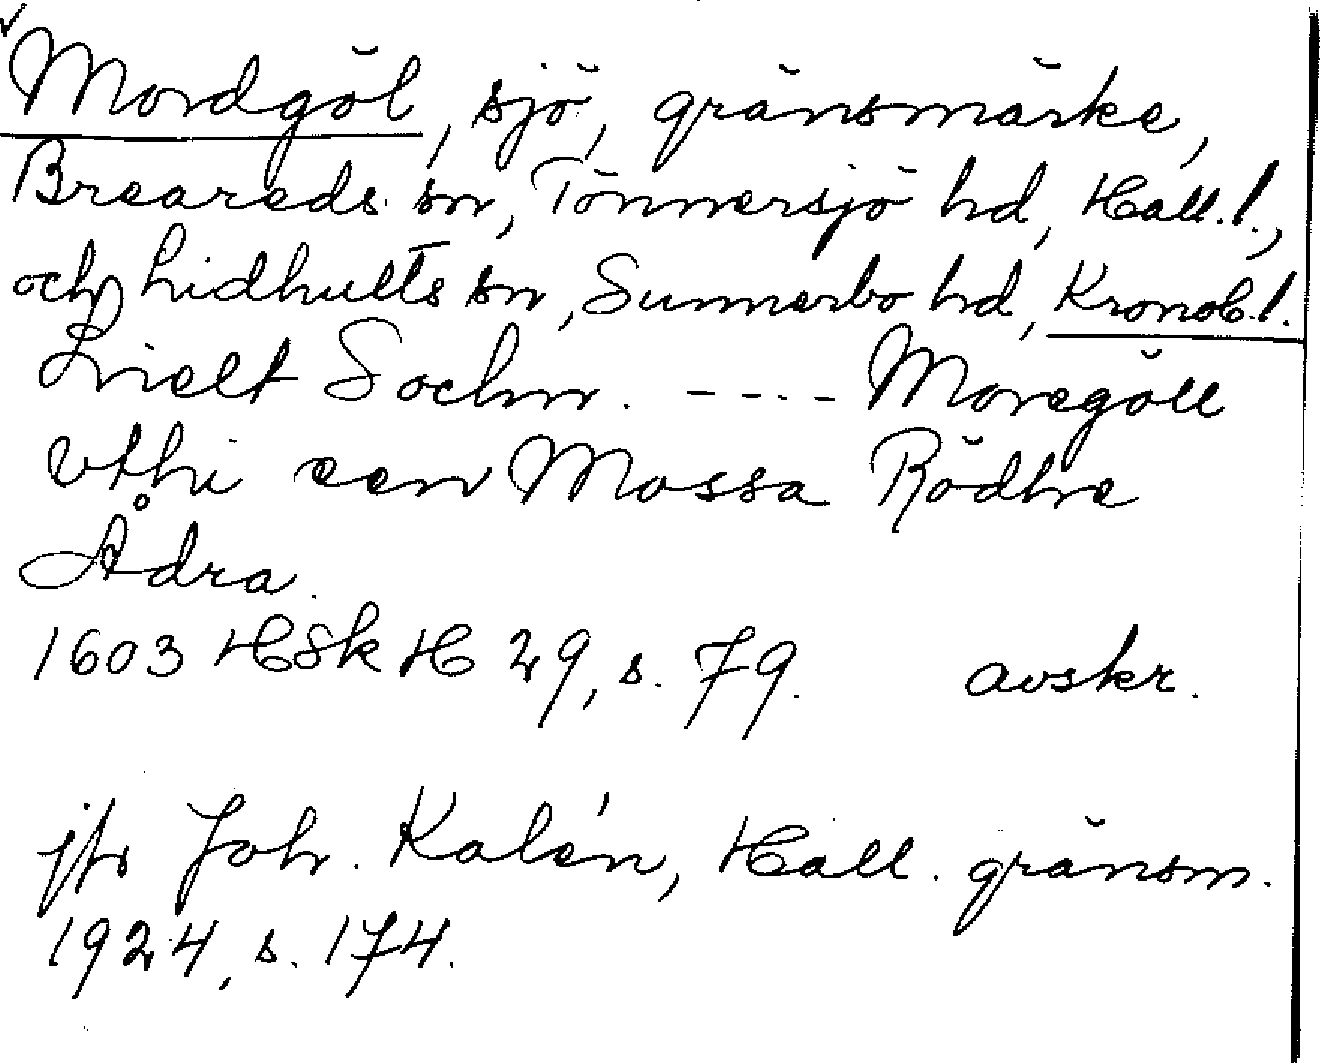 Mordgöl, sjö, gränsmärke,
Breareds sn, Tönnersjö hd, Hall. l.,
och Lidhults sn, Sunnerbo hd, Kronob. l.
Lnielt Sochnn. ---- Moregöll
vthi een Mossa Rödhe
Ådra.
1603 HSk H 29, s. 79. avskr.
jfr Joh. Kalén, Hall. gränsm.
1924, s. 174.